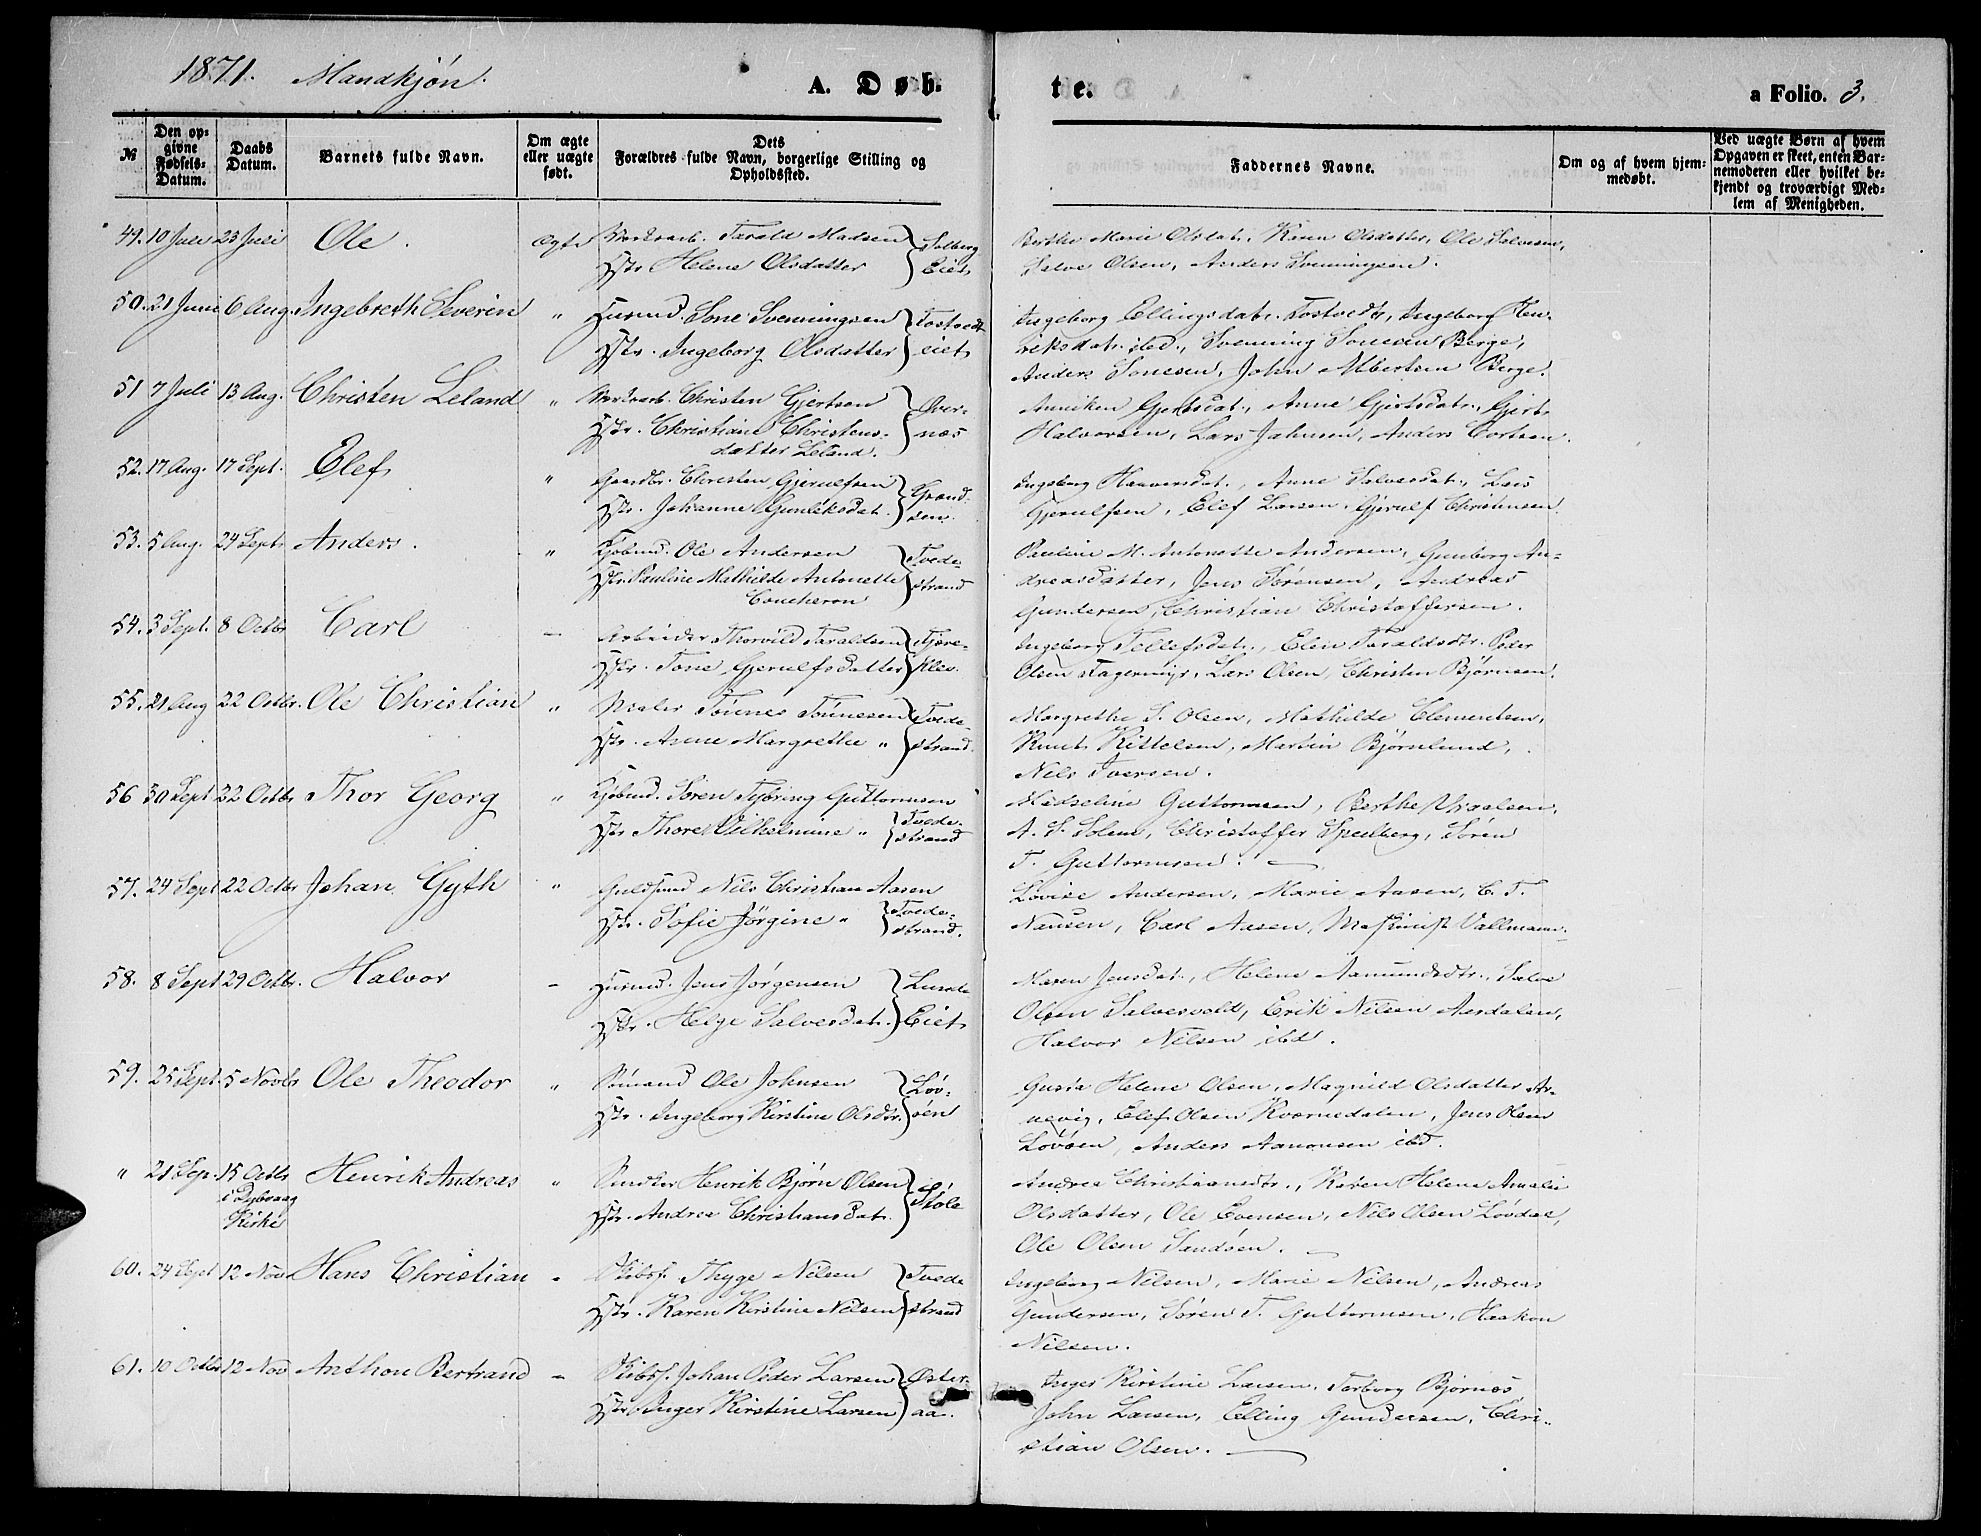 1871. Mandkjøn.
A. Døb-
te.
a Folio. 3.
№
Den op-
givne
Fødsels-
Datum.
Daabs
Datum.
Barnets fulde Navn.
Om ægte
eller uægte
født.
Dets
Forældres fulde Navn, borgerlige Stilling og
Opholdssted.
Faddernes Navne.
Om og af hvem hjem-
medøbt.
Ved uægte Børn af hvem
Opgaven er skeet, enten Bar-
nemoderen eller hvilket be-
kjendt og troværdigt Med-
lem af Menigheden.
49. 10 Juli 23 Juli Ole. Ægte Værksarb. Tarald Madsen Solberg
Hstr Helene Olsdatter Eiet
Berthe Marie Olsdat., Karen Olsdatter, Ole Salvesen,
Salve Olsen, Anders Svenningsen.
50. 21 Juni 6 Aug. Ingebreth Severin " Husmd. Sone Svenningsen Tostvedt
Hstr. Ingeborg Olsdatter eiet
Ingeborg Ellingsdatr. Tostvedt, Ingeborg Hen-
riksdatr. ibd., Svenning Sonesen Berge,
Anders Sonesen, John Albertsen Berge.
51 7 Juli 13 Aug. Christen Leland " Værksarb. Christen Gjertsen Øver-
Hstr. Christiane Christens- næs
datter Leland.
Anniken Gjertsdat., Anne Gjertsdatr., Gjert
Halvorsen, Lars Jahnsen, Anders Cortsen.
52. 17 Aug. 17 Sept. Elef " Gaardbr. Christen Gjerulfsen Grønd-
Hstr. Johanne Gunleksdat. sen.
Ingeborg Haavorsdat., Anne Salvesdat., Lars
Gjerulfsen, Elef Larsen, Gjerulf Christensen.
53. 5 Aug. 24 Sept Anders. " Kjøbmd. Ole Andersen Tvede-
Hstr. Pauline Mathilde Antonette strand
Coucheron
Pauline M. Antonette Andersen, Gunborg An-
dreasdatter, Jens Sørensen, Andreas
Gundersen, Christian Christoffersen.
54. 3 Sept. 8 Octbr Carl — Arbeider Thorvild Taraldsen Tjøre-
Hstr. Tone Gjerulfsdatter klev.
Ingeborg Tellefsdatr., Elen Taraldsdtr. Peder
Olsen Hagerninger, Lars Olsen, Christen Bjørnsen.
55. 21 Aug 22 Octbr. Ole Christian " Maler Tønnes Tønnesen Tvede-
Hstr. Anne Margrethe " strand.
Margrethe S. Olsen, Mathilde Clementsen,
Knut Kittelsen, Martin Bjørnlund,
Nils Iversen.
56 30 Sept 22 Octbr Thor Georg " Kjøbmd. Søren Tybring Guttormsen
Hstr Thora Vilhelmine " Tvede-
strand
Madseline Guttormsen, Berthe Vraalsen,
A. S. Solem, Christoffer Spelberg, Søren
T. Guttormsen. —
57. 24 Sept 22 Octbr Johan Gyth " Guldsmd Nils Christian Aasen
Hstr. Sofie Jørgine " Tvede-
strand.
Lovise Andersen, Marie Aasen, C. T.
Nansen, Carl Aasen, Maskinist Vallmann.
58. 8 Sept 29 Octbr. Halvor — Husmd. Jens Jørgensen Lunde
Hstr. Helge Salvesdatr. Eiet
Maren Jensdat., Helene Aamundsdtr., Salve
Olsen Salvesvold, Erik Nilsen Aasdalen,
Halvor Nilsen ibd.
59. 25 Sept. 5 Novbr Ole Theodor " Sømand Ole Johnsen Løv-
Hstr. Ingeborg Kirstine Olsdtr. øen
Gusta Helene Olsen, Magnild Olsdatter Ar-
nevig, Elef Olsen Kvernedalen, Jens Olsen
Løvøen, Anders Aanonsen ibd.
" 21 Sep. 15 Octbr Henrik Andreas " Snedker Henrik Bjørn Olsen Støle
i Dybvaag Hstr. Andrea Christiansdatr.
Kirke
Andrea Christiansdtr., Karen Helene Amalie
Olsdatter, Ole Evensen, Nils Olsen Løvdal,
Ole Olsen Sandøen. —
60. 24 Sept 12 Nov Hans Christian " Skibsf. Thyge Nilsen Tvede
Hstr. Karen Kirstine Nilsen strand
Ingeborg Nilsen, Marie Nilsen, Andreas
Gundersen, Søren T. Guttormsen, Haakon
Nilsen.
61. 10 Octbr 12 Nov Anthon Bertrand — Skibsf. Johan Peder Larsen Øster-
Hstr. Inger Kirstine Larsen aa.
Inger Kirstine Larsen, Torborg Bjørnes
John Larsen, Elling Gundersen, Chri-
stian Olsen. —